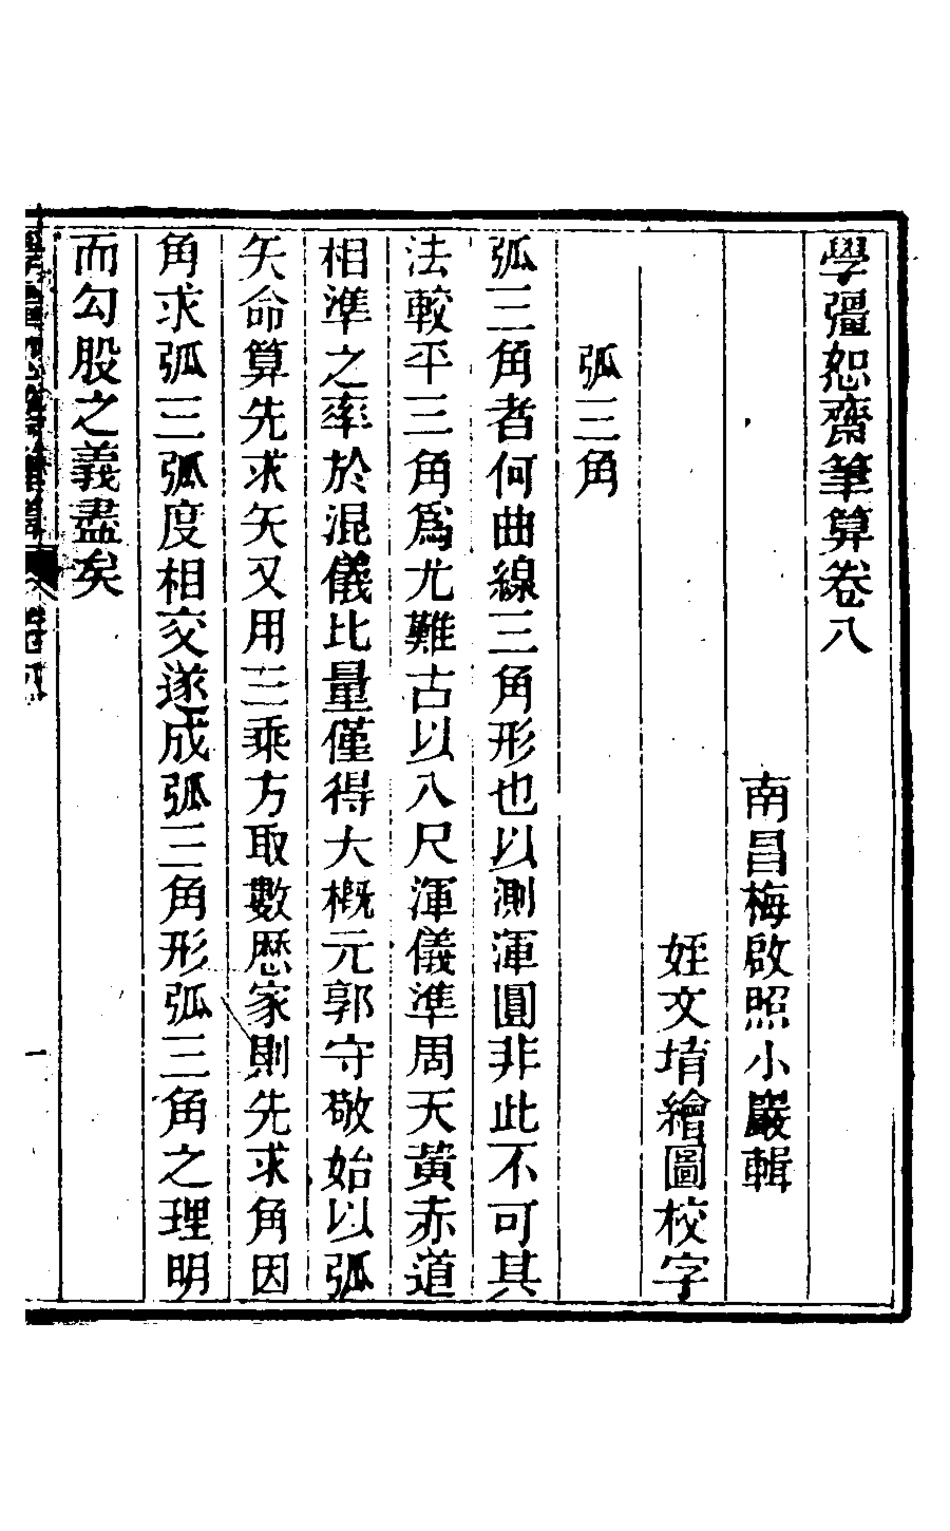 學彊恕齋筆算卷八
南昌梅啟照小巖輯
姪文堉繪圖校字
弧三角
弧三角者何曲線三角形也以測渾圓非此不可其
法較平三角爲尤難古以八尺渾儀準周天黃赤道
相準之率於混儀比量僅得大概元郭守敬始以弧
矢命算先求矢又用三乘方取數歷家則先求角因
角求弧三弧度相交遂成弧三角形弧三角之理明
而勾股之義盡矣
一